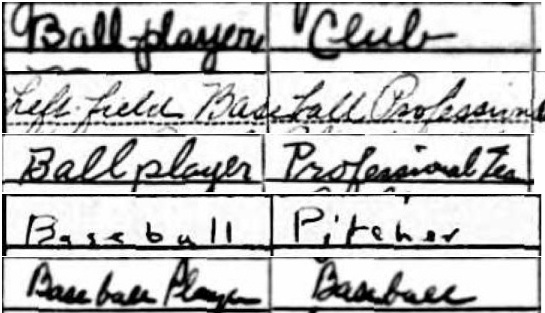 Ball-player Club
Left-field Baseball Profession
Ball player Professional Tea
Baseball Pitcher
Baseball Player Baseball